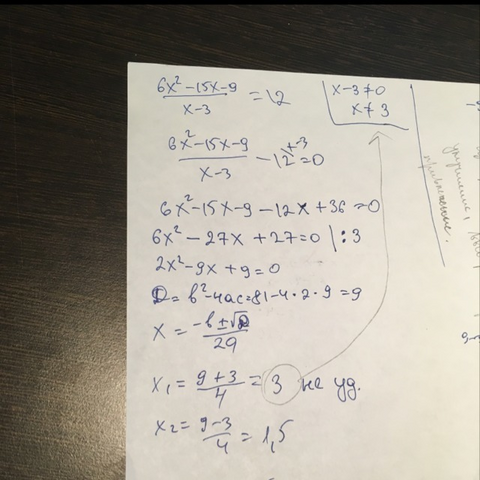 6x² - 15x - 9 / x - 3 = 12
x - 3 ≠ 0
x ≠ 3
6x² - 15x - 9 / x - 3 - 12 ^x-3 = 0
6x² - 15x - 9 - 12x + 36 = 0
6x² - 27x + 27 = 0 | : 3
2x² - 9x + 9 = 0
D = b² - 4ac = 81 - 4 · 2 · 9 = 9
x = -b ± √D / 2a
x₁ = 9 + 3 / 4 = 3 не уд.
x₂ = 9 - 3 / 4 = 1,5